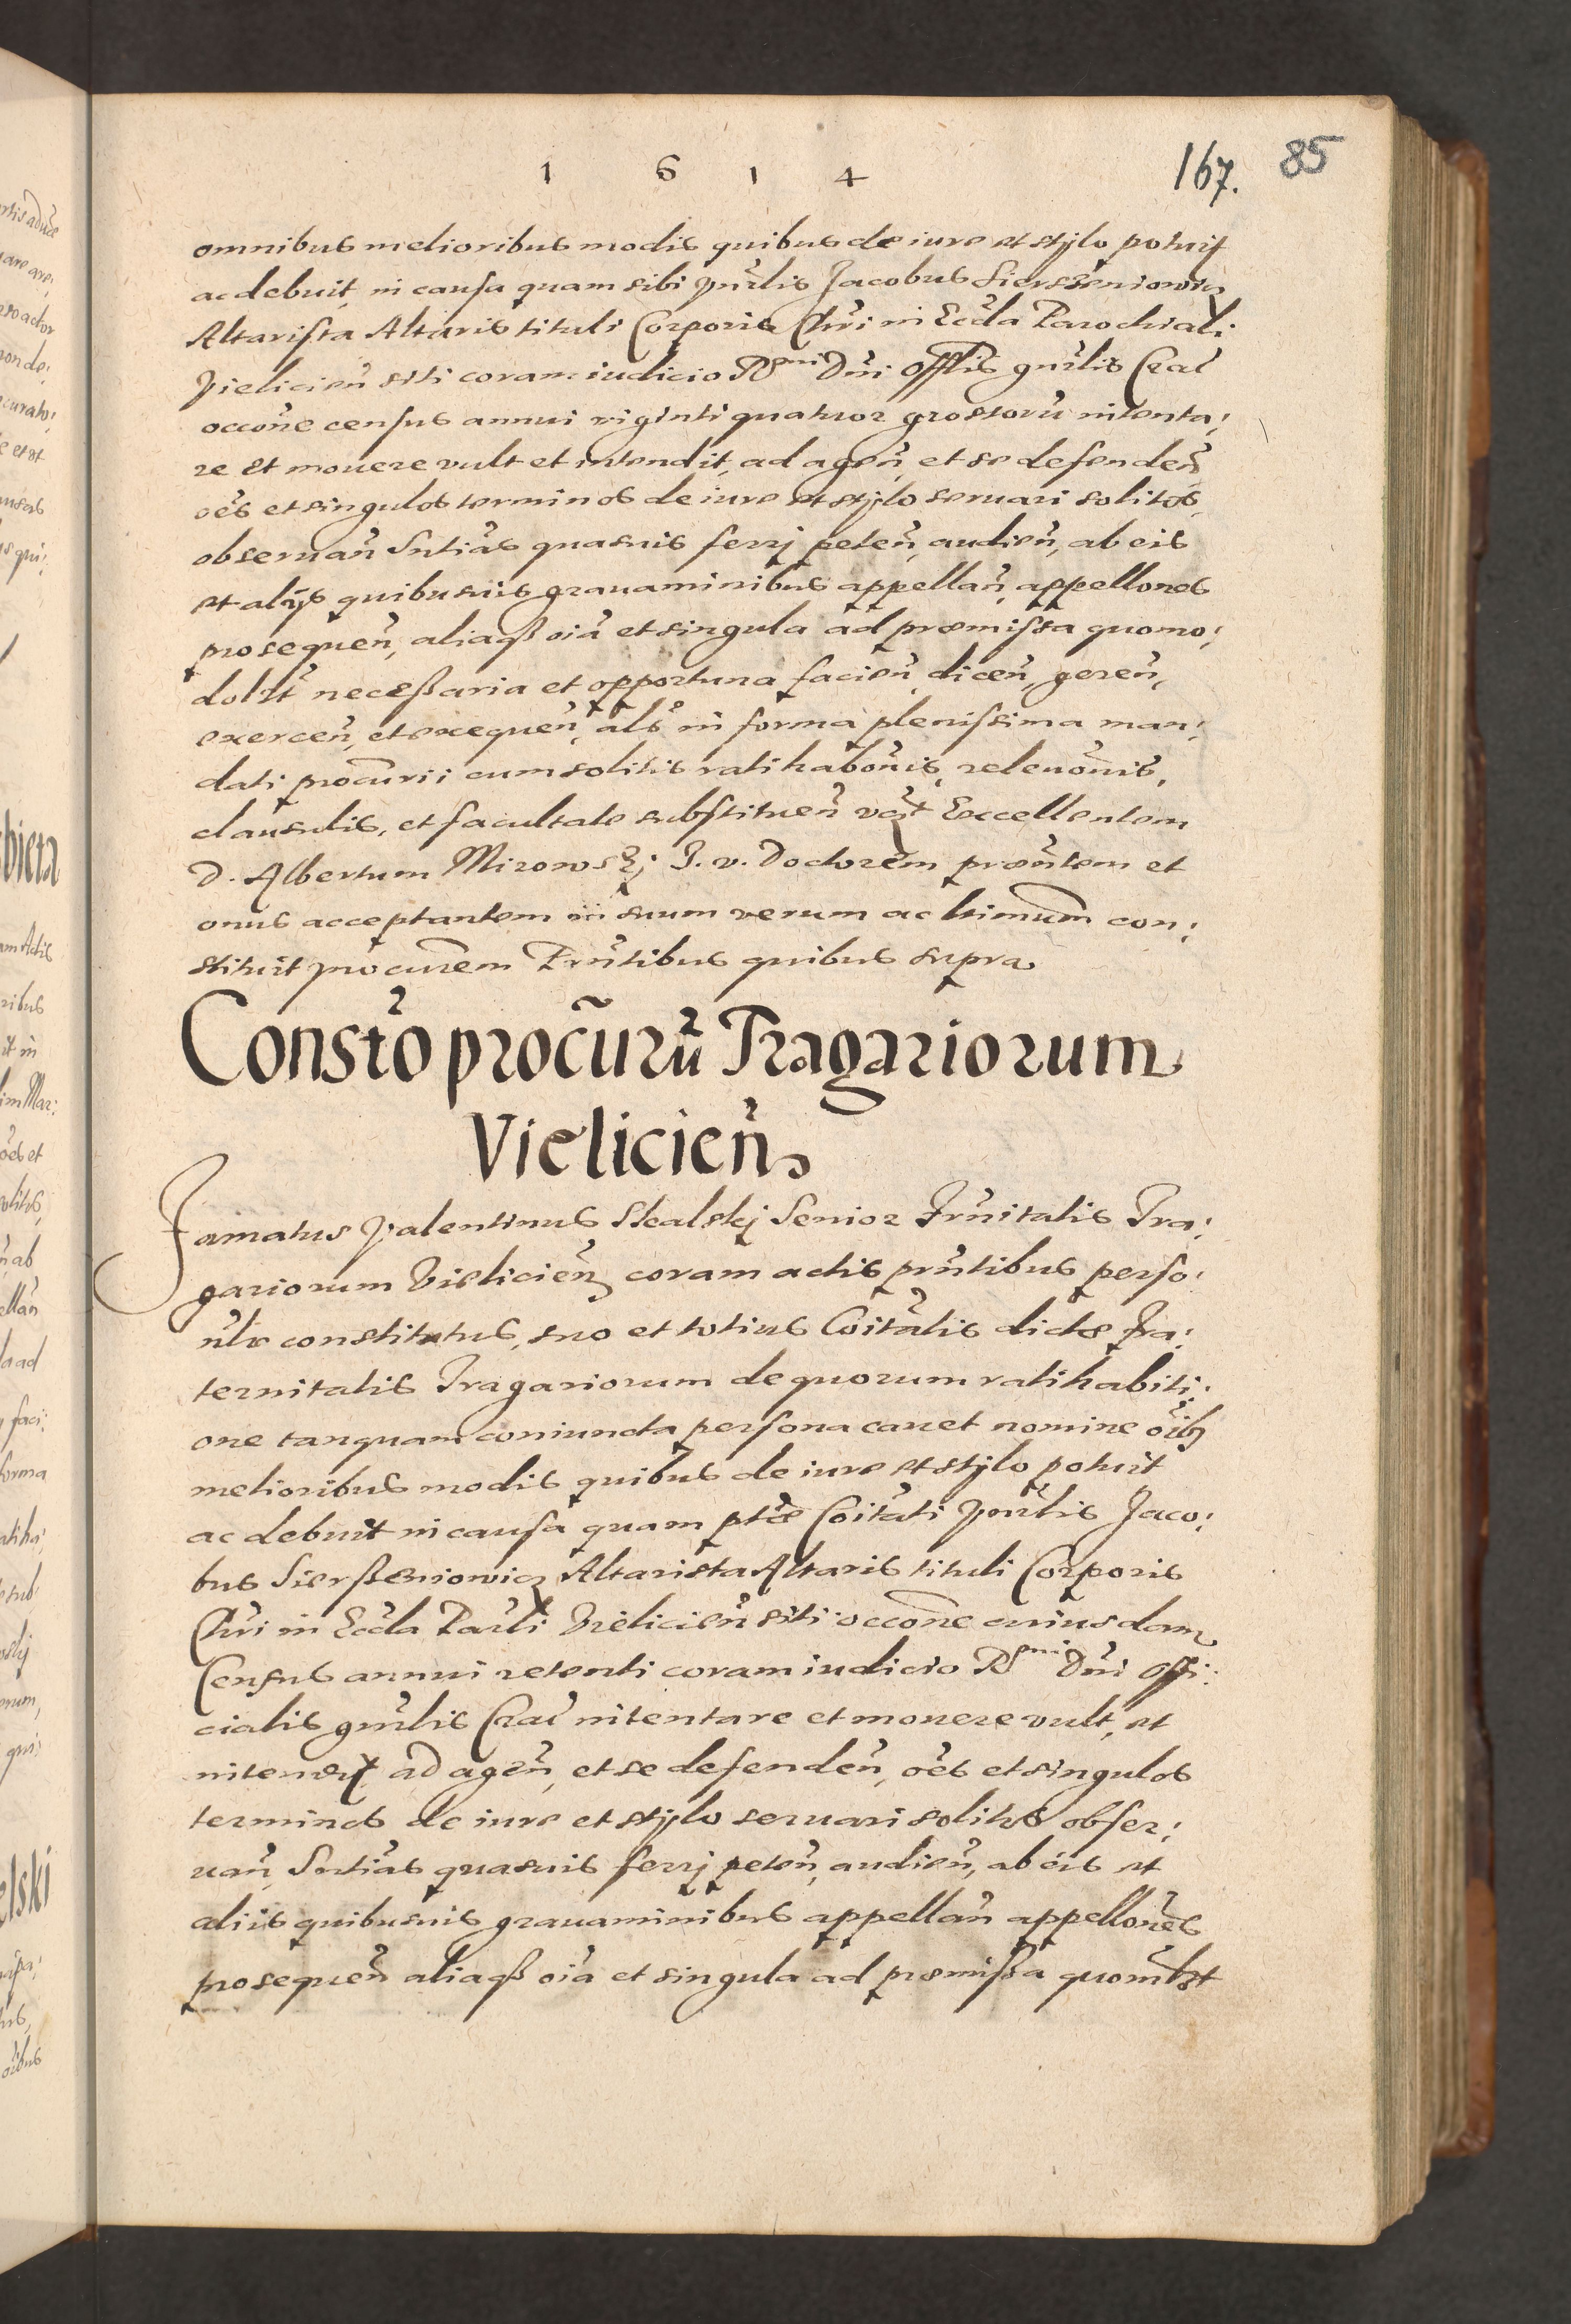 1 6 1 4 167. 85
omnibus melioribus modis quibus de iure et stylo potuit
ac debuit, in causa quam sibi Vnrlis Jacobus
Altarista Altaris tituli Corporis Chri in Eccla Parochiali
Vielicien siti coram iudicio Rdmi Dni Offlis gnrlis Crac
occone census annui viginti quatuor grossoru intenta:
re et mouere vult et intendit, ad agen, et se defenden
oes et singulos terminos de iure et stylo seruari solitos,
obseruan Sntias quasuis ferrj peten, audien, ab eis
et alijs quibusuis grauaminibus appellan, appellones
prosequen, aliaqß oia et singula ad præmissa quomo:
dolbt necessaria et opportuna facien, dicen, geren,
exercen, et exequen, als in forma plenissima man:
dati procurii cum solitis ratihabonis, releuonis,
clausulis, et facultate substituen Excellentem
D. Albertum Mirowskj J. v. Doctorem præntem et
onus acceptantem in suum verum ac ltimum con:
stituit procurem Prntibus quibus supra
Consto procuru Tragariorum
Vielicien
Famatus Valentinus Skalskj Senior Frnitatis Tra:
gariorum Vielicien coram actis prntibus perso:
nlr constitutus, suo et totius Coitatis dictæ Fra:
ternitatis Tragariorum de quorum ratihabiti:
one tanquam coniuncta persona cauet nomine oibq
melioribus modis quibus de iure et stylo potuit
ac debuit in causa quam ptæ Coitati Vnrlis Jaco:
bus Sierßeniowicz Altarista Altaris tituli Corporis
Chri in Eccla Parli Vielicien siti occone cuiusdam
Census annui retenti coram iudicio Rdmi Dni Offi:
cialis gnrlis Crac intentare et mouere vult, et
intendit, ad agen, et se defenden, oes et singulos
terminos de iure et stylo seruari solitos obser:
uan, Sntias quasuis ferrj peten, audien, ab eis et
aliis quibusuis grauaminibus appellan appellones
prosequen aliaqß oia et singula ad præmissa quomlbt